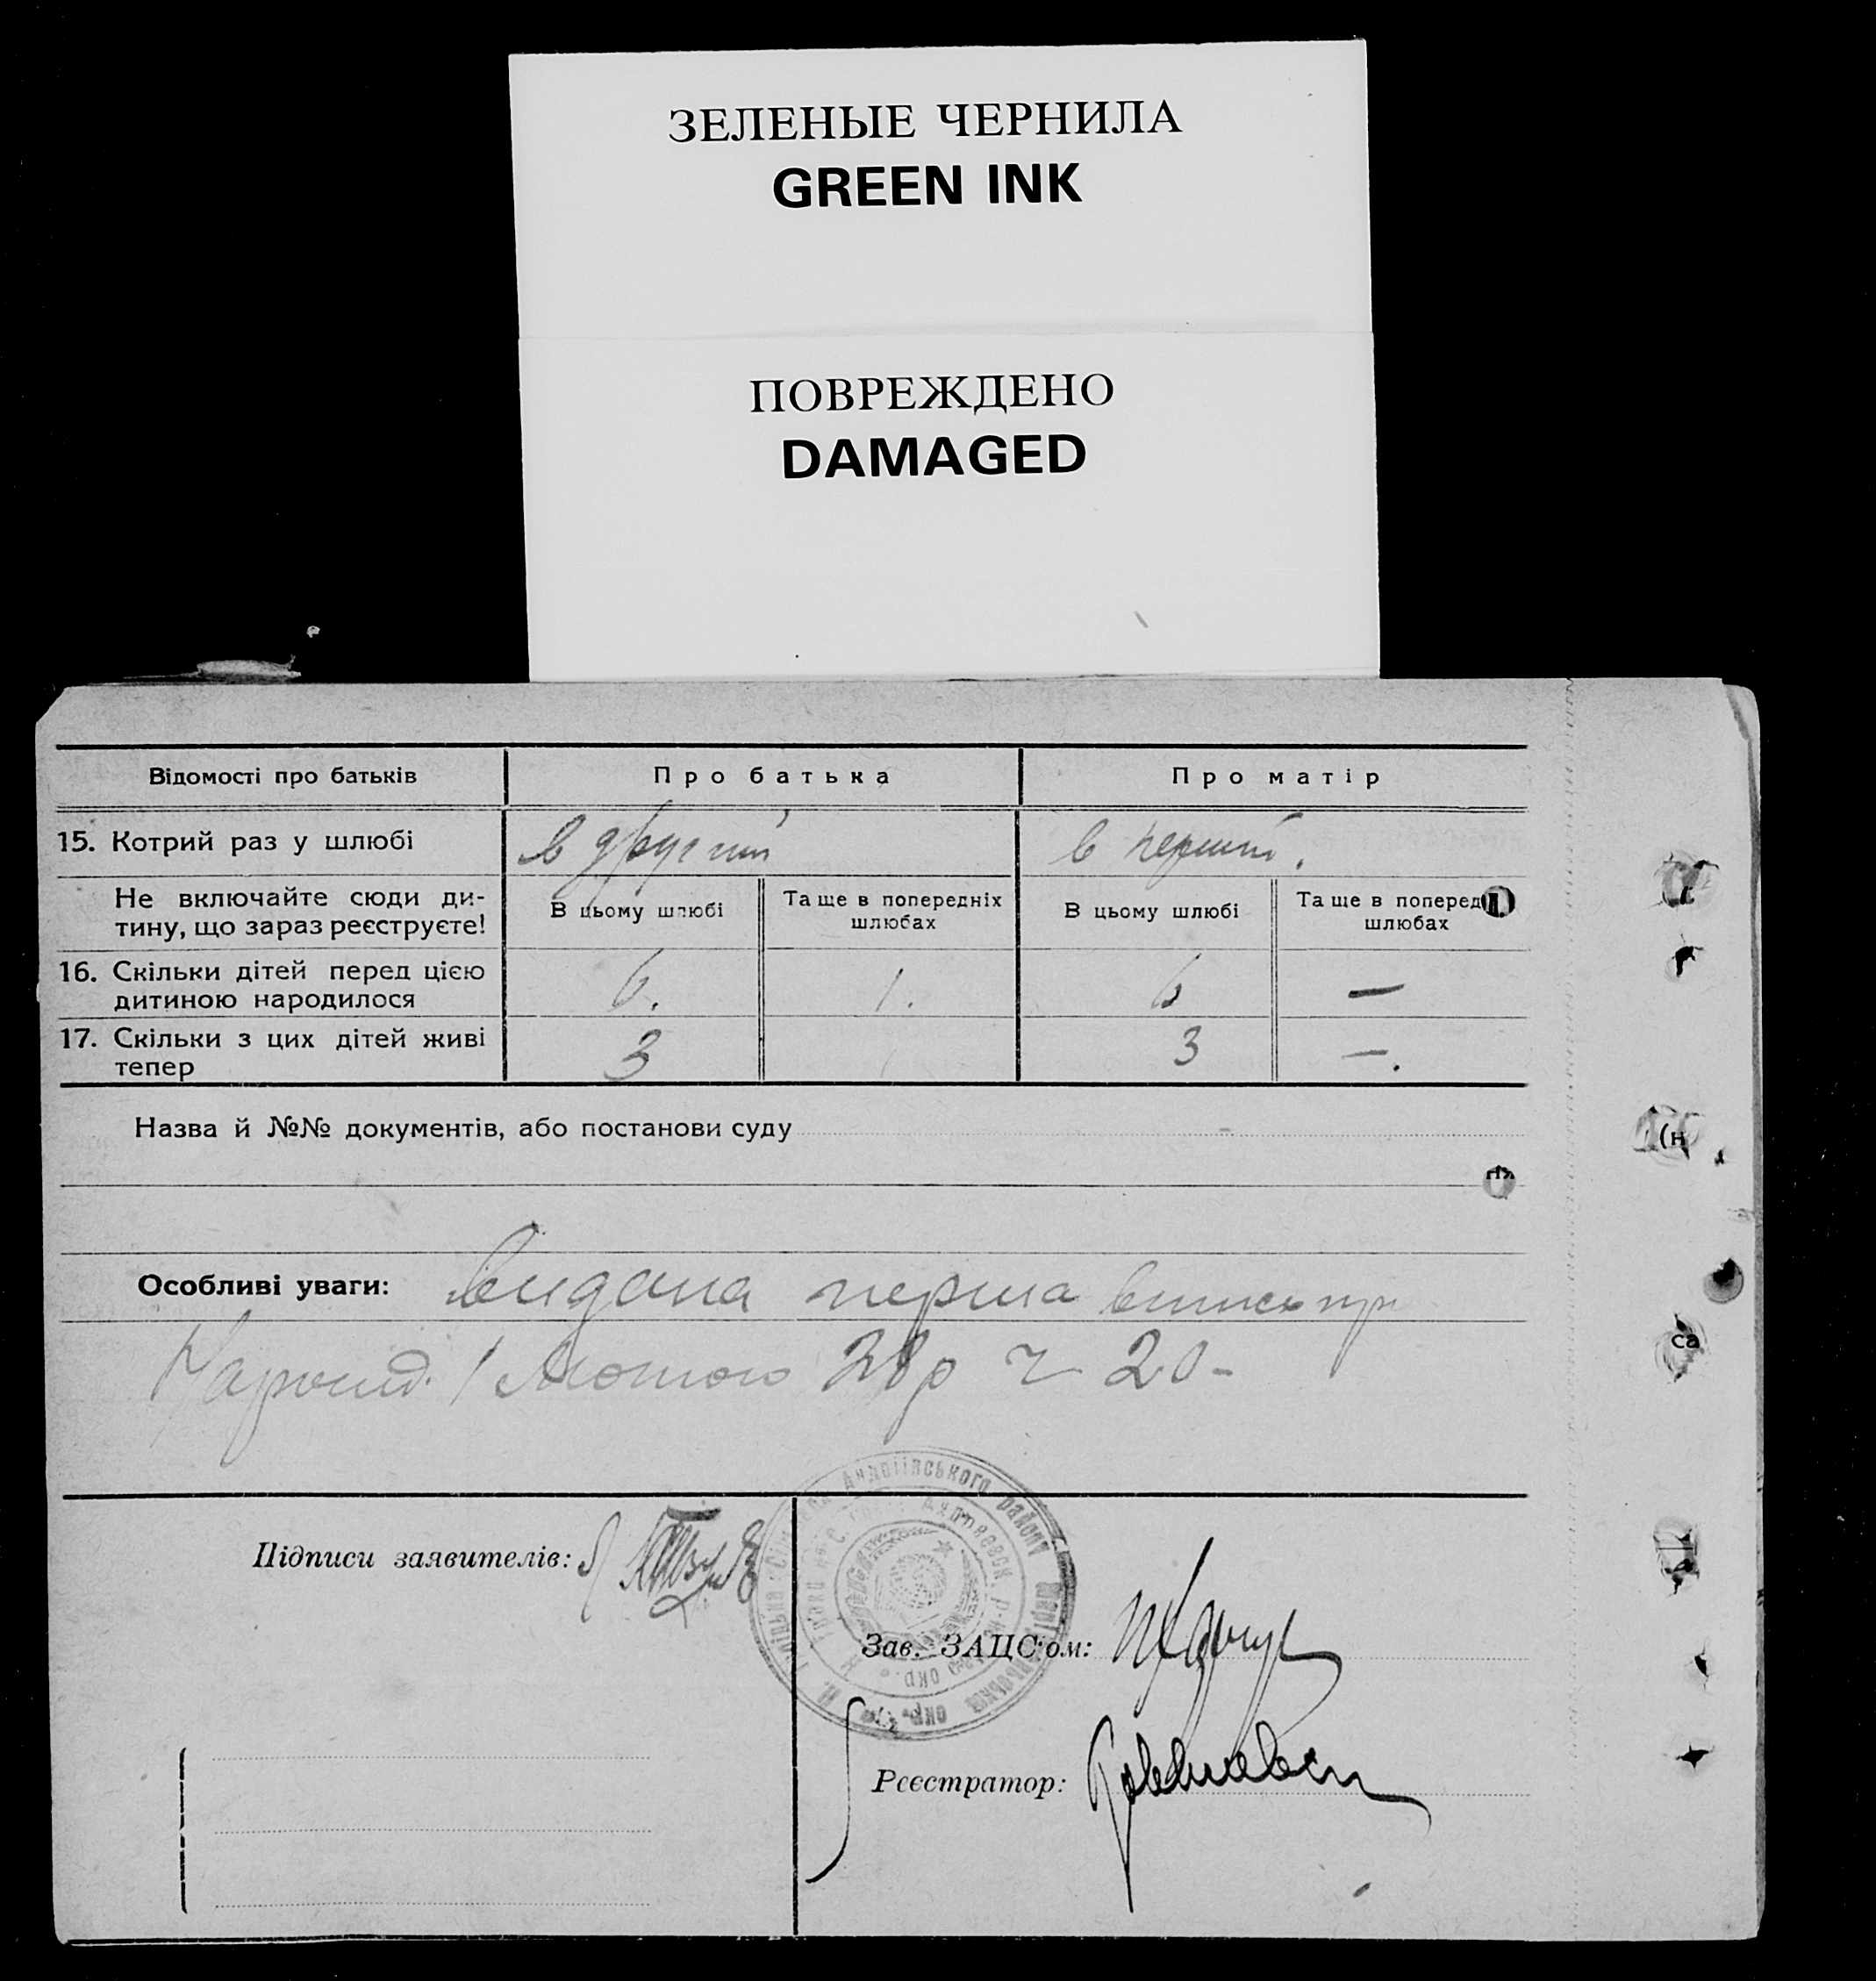 ЗЕЛЕНЫЕ ЧЕРНИЛА
GREEN INK
ПОВРЕЖДЕНО
DAMAGED
Відомості про батьків
Про батька
Про матір
15. Котрий раз у шлюбі
в другий
в перший.
Не включайте сюди ди-
тину, що зараз реєструєте!
В цьому шлюбі
Та ще в попередніх
шлюбах
В цьому шлюбі
Та ще в поперед
шлюбах
16. Скільки дітей перед цією
дитиною народилося
6.
1.
6
—
17. Скільки з цих дітей живі
тепер
3
3
—.
Назва й №№ документів, або постанови суду
Особливі уваги: Видана перша випись про
Народ. 1 лютого 28 р ч 20-
Андріївського району Маріюпільськ окр.
Підписи заявителів:
Зав. ЗАЦС'ом:
Реєстратор:
(н
са